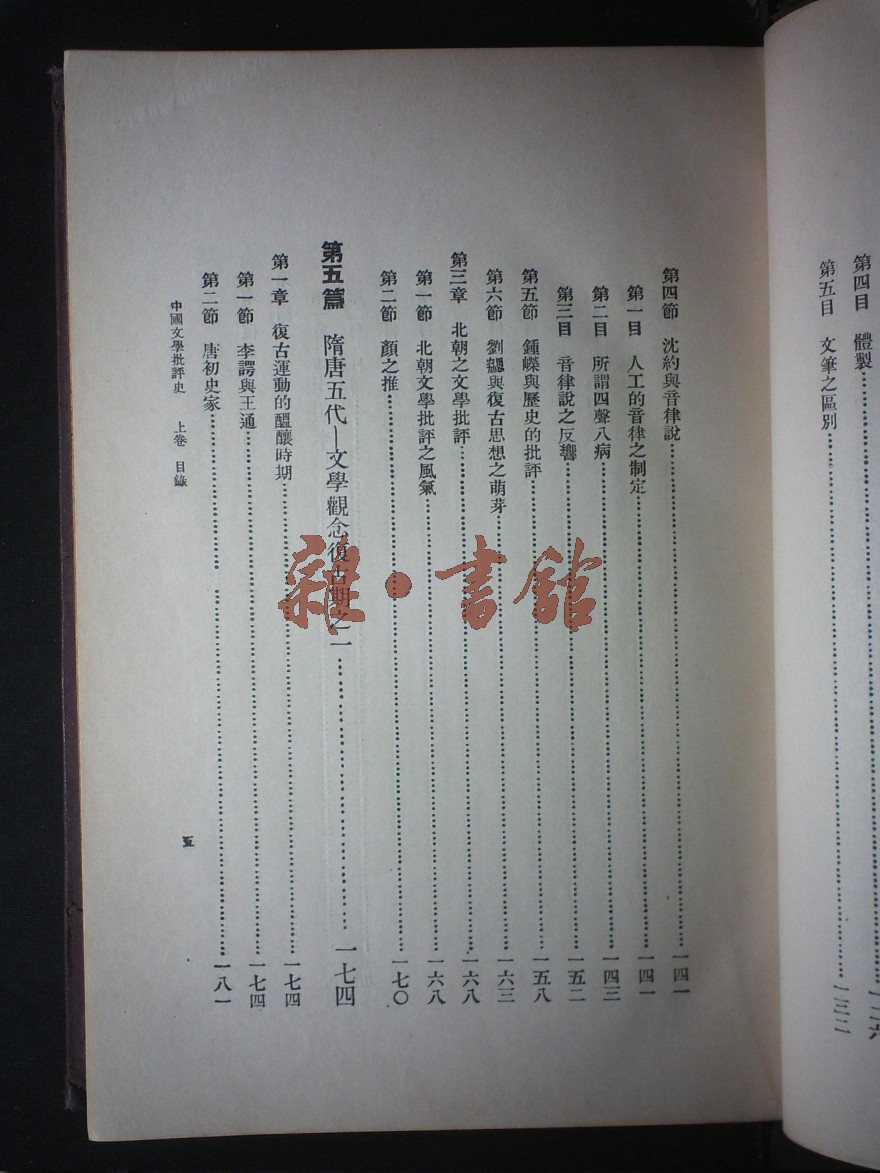 第四目　體製……一二六
第五目　文筆之區別……一三二
第四節　沈約與音律說……一四一
第一目　人工的音律之制定……一四一
第二目　所謂四聲八病……一四三
第三目　音律說之反響……一五二
第五節　鍾嶸與歷史的批評……一五八
第六節　劉勰與復古思想之萌芽……一六三
第三章　北朝之文學批評……一六八
第一節　北朝文學批評之風氣……一六八
第二節　顏之推……一七〇
第五篇　隋唐五代—文學觀念復古期之一……一七四
第一章　復古運動的醞釀時期……一七四
第一節　李諤與王通……一七四
第二節　唐初史家……一八一
中國文學批評史　上卷　目錄
五
雜·書館